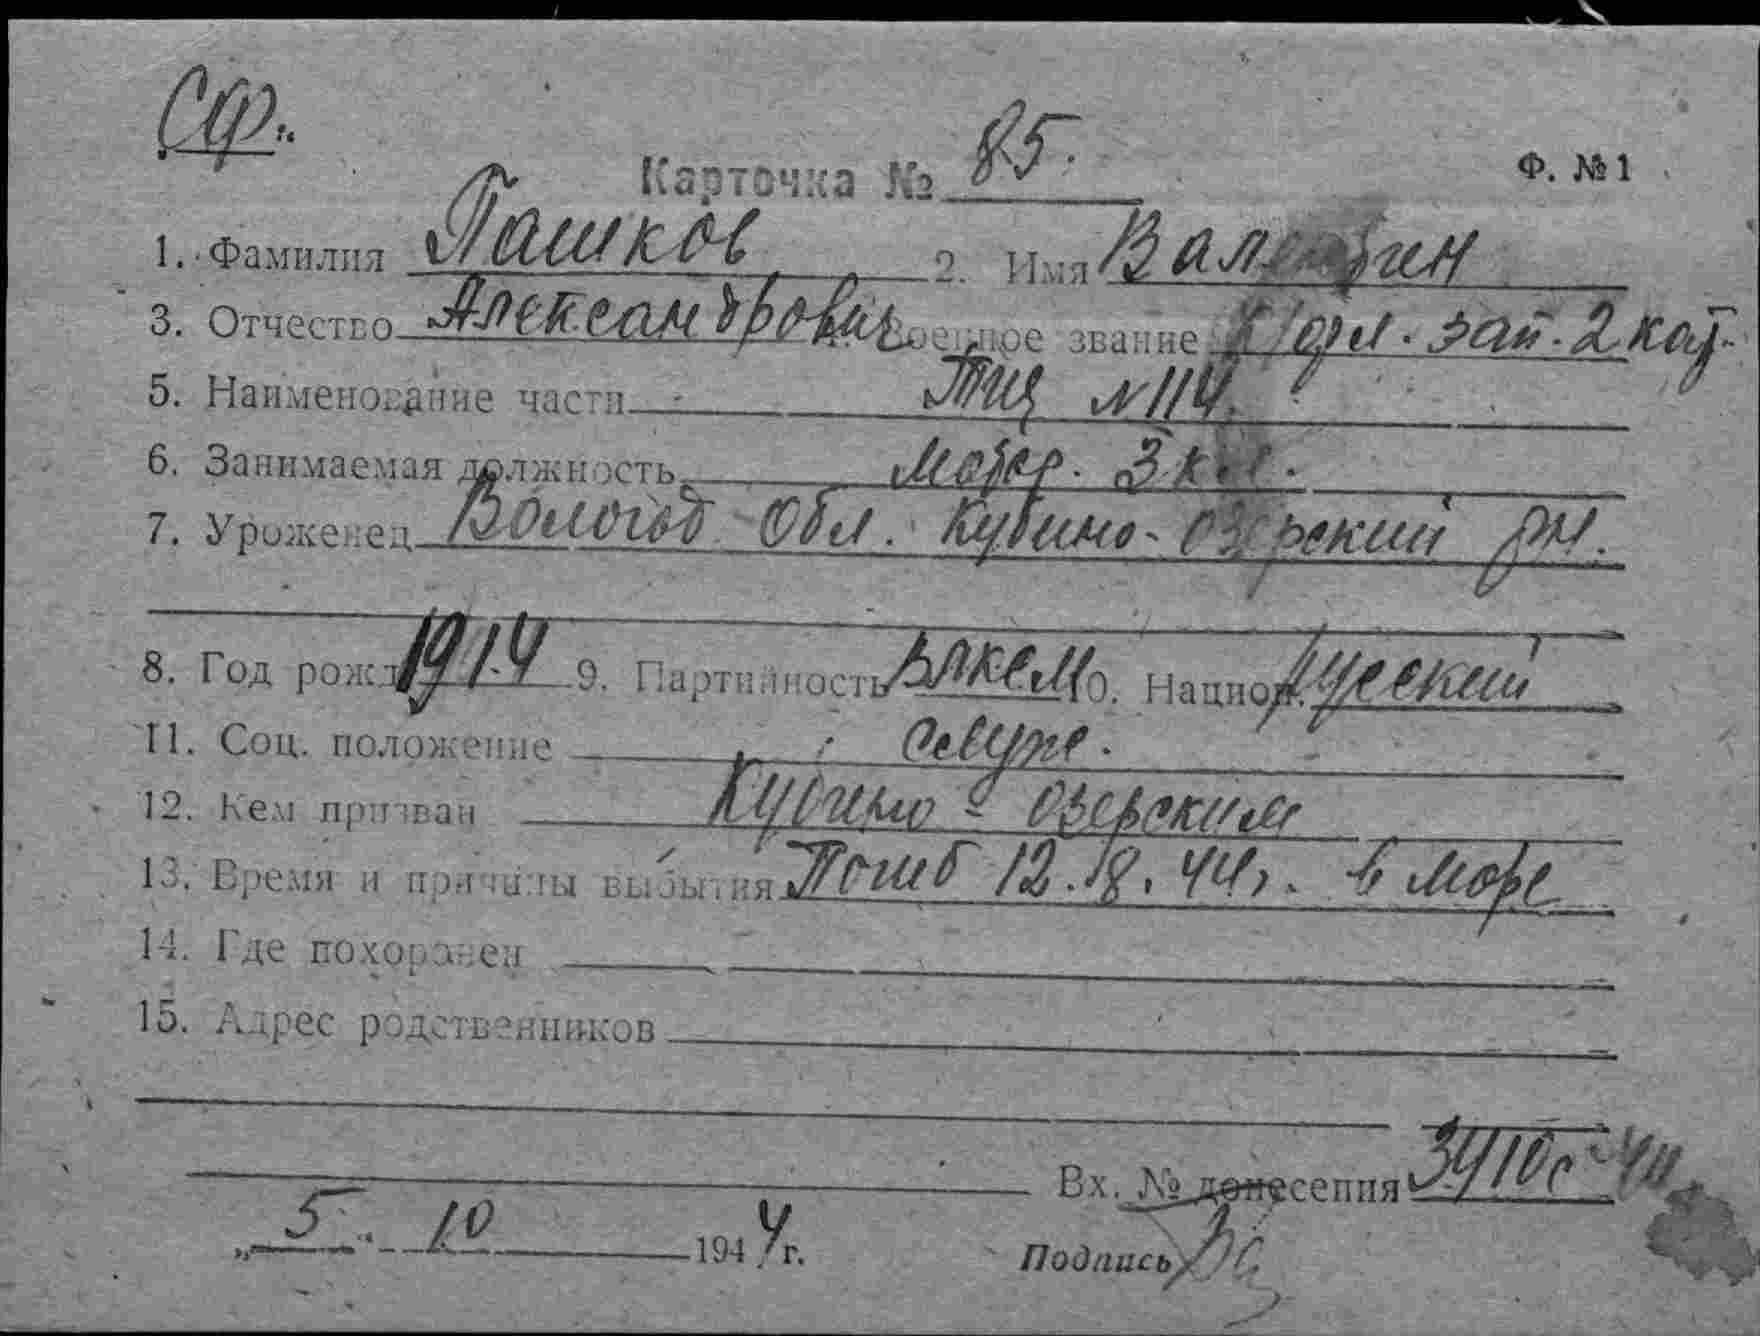 СФ.
Карточка № 85.
Ф. №1
1. Фамилия Пашков 2. Имя Валентин
3. Отчество Александрович Военное звание К/фл. зап. 2 кат.
5. Наименование части ТЩ №114.
6. Занимаемая должность матер. 3 кл.
7. Уроженец Вологод Обл. Кубино-озерский рн.
8. Год рожд 1914 9. Партийность ВЛКСМ 10. Национ. Русский
11. Соц. положение служ.
12. Кем призван Кубино-озерским
13. Время и причины выбытия Погиб 12.8.44г. в море
14. Где похоронен
15. Адрес родственников
Вх. № донесения 3410с-44
„5" 10 1944г.
Подпись